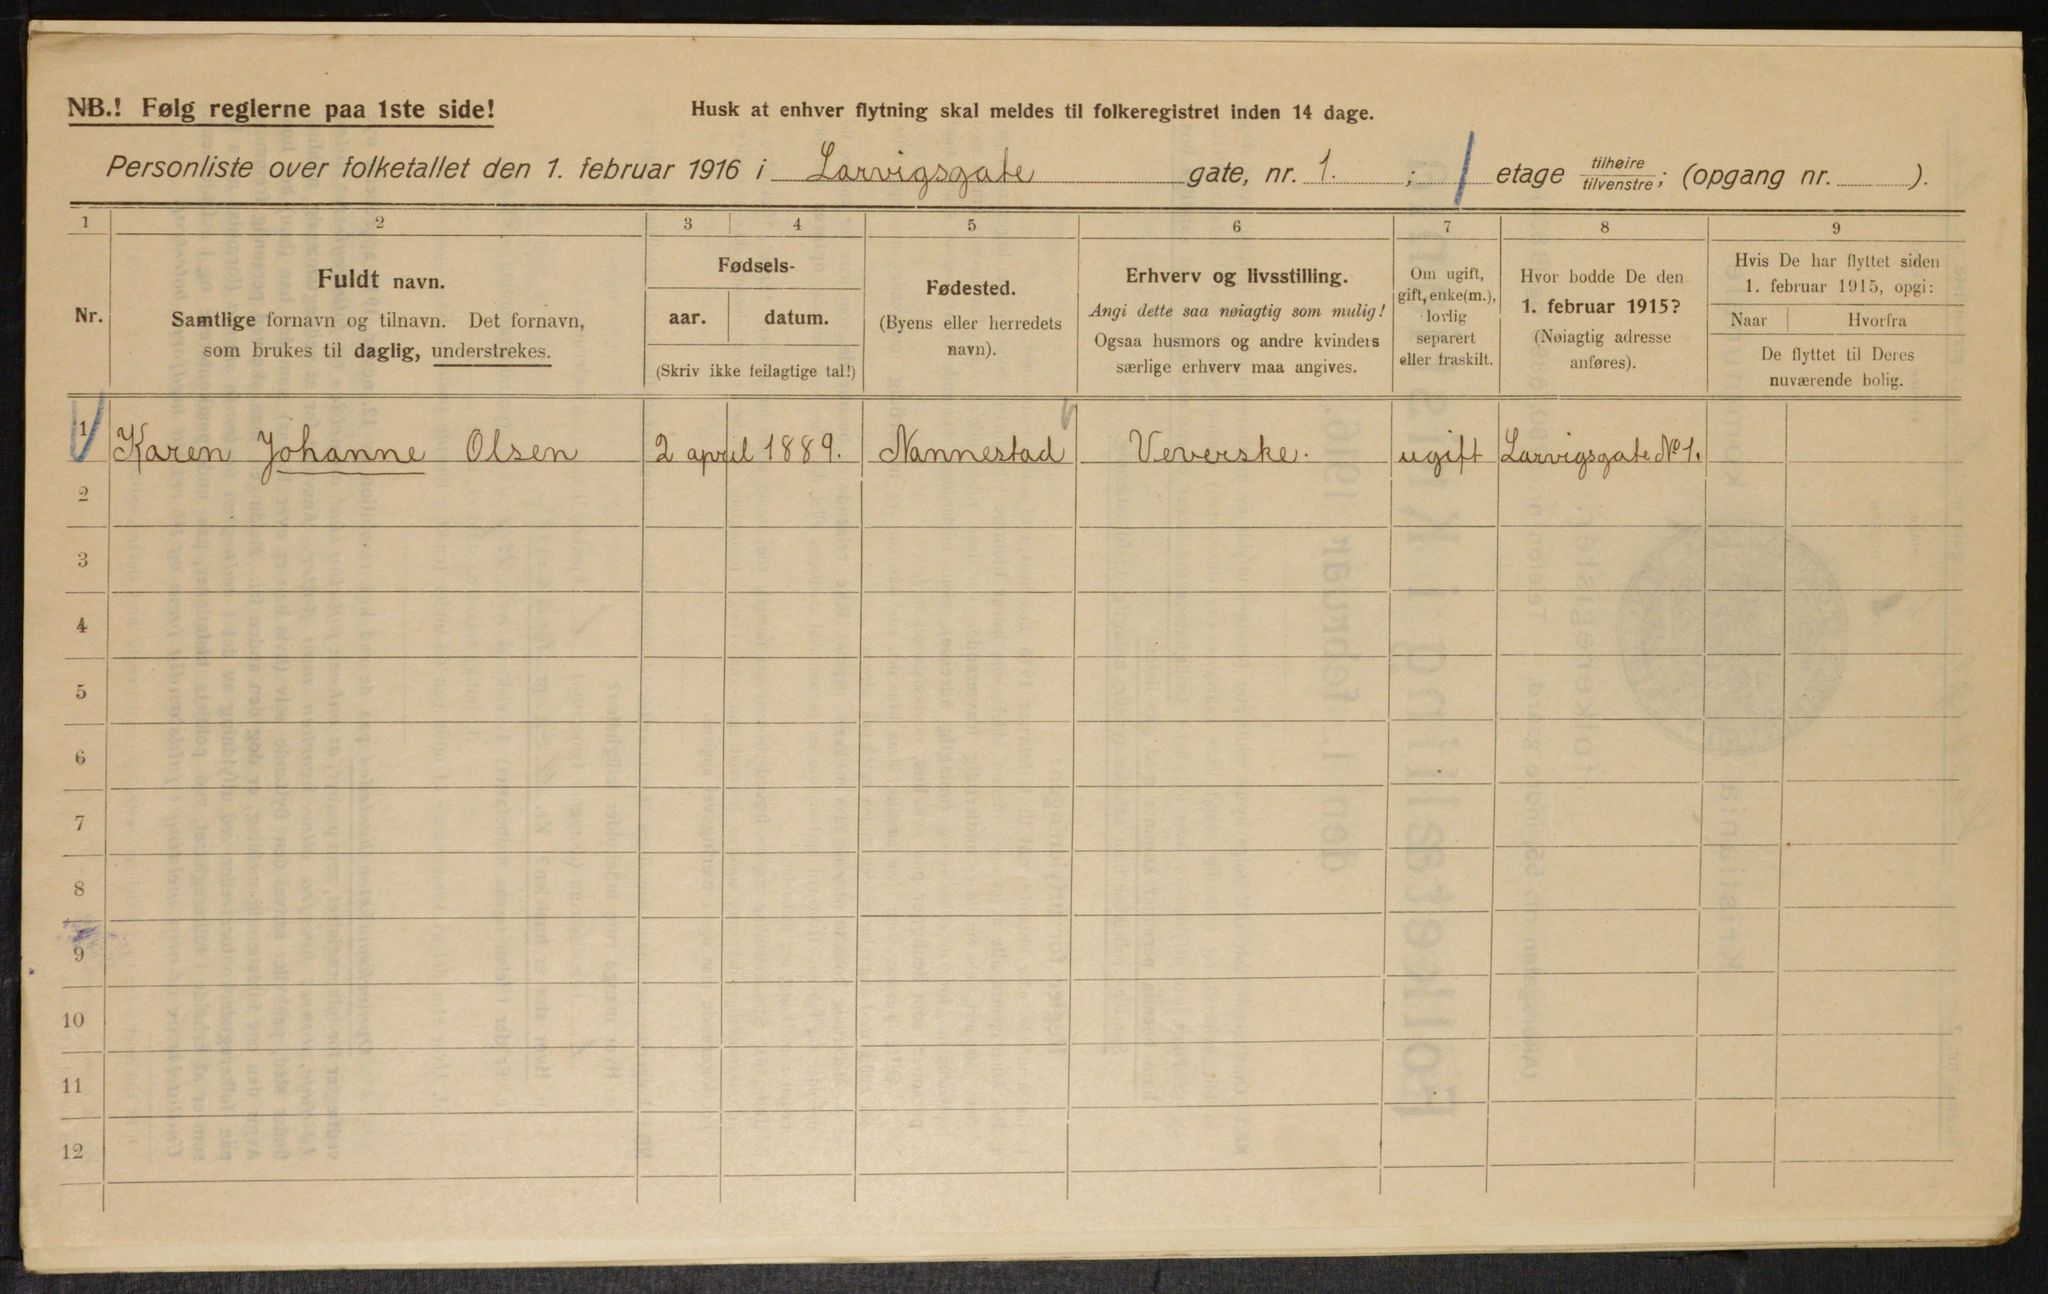 NB.! Følg reglerne paa 1ste side!
Husk at enhver flytning skal meldes til folkeregistret inden 14 dage.
Personliste over folketallet den 1. februar 1916 i Larvigsgate gate, nr. 1. ; etage tilhøire/tilvenstre; (opgang nr. ).
1 2 3 4 5 6 7 8 9
Nr.
Fuldt navn.
Samtlige fornavn og tilnavn. Det fornavn,
som brukes til daglig, understrekes.
Fødsels-
aar. datum.
(Skriv ikke feilagtige tal!)
Fødested.
(Byens eller herredets
navn).
Erhverv og livsstilling.
Angi dette saa nøiagtig som mulig!
Ogsaa husmors og andre kvinders
særlige erhverv maa angives.
Om ugift,
gift, enke(m.),
lovlig
separert
eller fraskilt.
Hvor bodde De den
1. februar 1915?
(Nøiagtig adresse
anføres).
Hvis De har flyttet siden
1. februar 1915, opgi:
Naar Hvorfra
De flyttet til Deres
nuværende bolig.
1 Karen Johanne Olsen 2 april 1889. Nannestad Veverske. ugift Larvigsgate No 1.
2
3
4
5
6
7
8
9
10
11
12